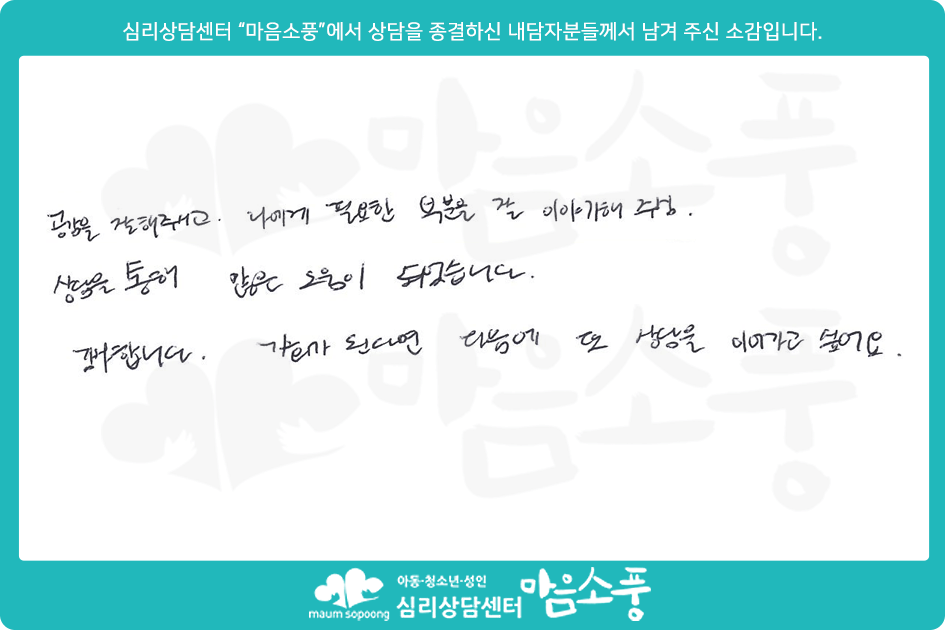 심리상담센터 “마음소풍”에서 상담을 종결하신 내담자분들께서 남겨 주신 소감입니다.
마음소풍
공감을 잘해주시고. 나에게 필요한 부분을 잘 이야기해 주셔.
상담을 통해 많은 도움이 되었습니다.
감사합니다. 기회가 된다면 다음에 또 상담을 이어가고 싶어요.
마음소풍
maum sopoong
아동·청소년·성인
심리상담센터 마음소풍